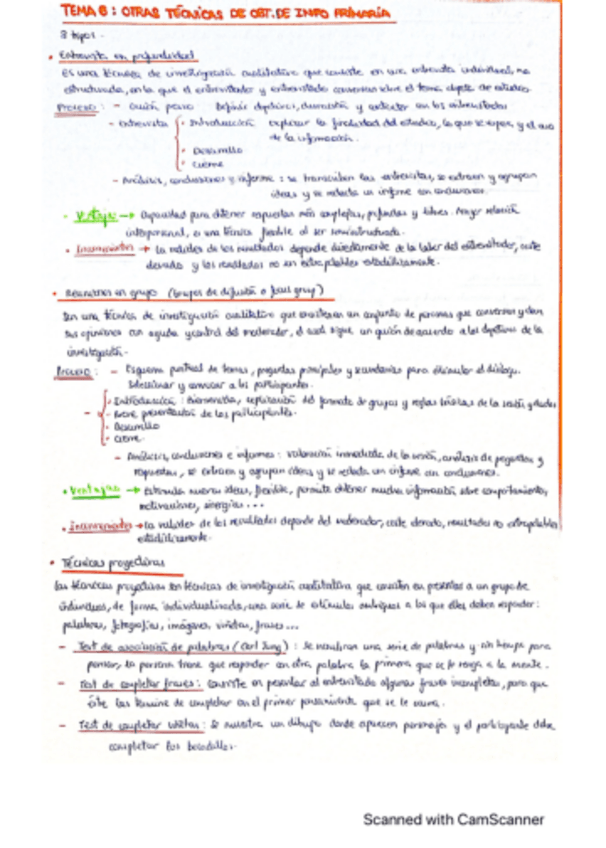 TEMA 6: OTRAS TÉCNICAS DE OBT. DE INFO PRIMARIA
3 tipos.
• Entrevista en profundidad
Es una técnica de investigación cualitativa que consiste en una entrevista individual, no
estructurada, en la que el entrevistador y entrevistado conversan sobre el tema objeto de estudio.
Proceso: - Guión previo Definir objetivos, duración y contactar con los entrevistados
- Entrevista • Introducción explicar la finalidad del estudio, lo que se espera, y el uso
de la información.
• Desarrollo
• Cierre
- Análisis, conclusiones e informe: se transcriben las entrevistas, se extraen y agrupan
ideas y se redacta un informe con conclusiones.
• Ventajas → Capacidad para obtener respuestas más complejas, profundas y libres. Mayor relación
interpersonal, es una técnica flexible al ser semiestructurada.
• Inconvenientes → La validez de los resultados depende directamente de la labor del entrevistador, coste
elevado y los resultados no son extrapolables estadísticamente.
• Reuniones en grupo (Grupos de discusión o focus group)
Son una técnica de investigación cualitativa que consisten en un conjunto de personas que conversan y dan
sus opiniones con ayuda y control del moderador, el cual sigue un guión de acuerdo a los objetivos de la
investigación.
Proceso: - Esquema puntual de temas, preguntas principales y secundarias para estimular el diálogo.
Seleccionar y convocar a los participantes.
• Introducción: Bienvenida, explicación del formato de grupos y reglas básicas de la sesión
- • Breve presentación de los participantes.
• Desarrollo
• Cierre
- Análisis, conclusiones e informes: valoración inmediata de la sesión, análisis de preguntas y
respuestas, se extraen y agrupan ideas y se redacta un informe con conclusiones.
• Ventajas → Estimula nuevas ideas, flexible, permite obtener mucha información sobre comportamiento,
motivaciones, sinergias...
• Inconvenientes → La validez de los resultados depende del moderador, coste elevado, resultados no extrapolables
estadísticamente.
• Técnicas proyectivas
Las técnicas proyectivas son técnicas de investigación cualitativa que consisten en presentar a un grupo de
individuos, de forma individualizada, una serie de estímulos ambiguos a los que ellos deben responder:
palabras, fotografías, imágenes, viñetas, frases...
- Test de asociación de palabras (Carl Jung): Se muestran una serie de palabras y sin tiempo para
pensar, la persona tiene que responder con otra palabra la primera que se le venga a la mente.
- Test de completar frases: consiste en presentar al entrevistado algunas frases incompletas, para que
éste las termine de completar con el primer pensamiento que se le ocurra.
- Test de completar viñetas: Se muestra un dibujo donde aparecen personajes y el participante debe
completar los bocadillos.
Scanned with CamScanner